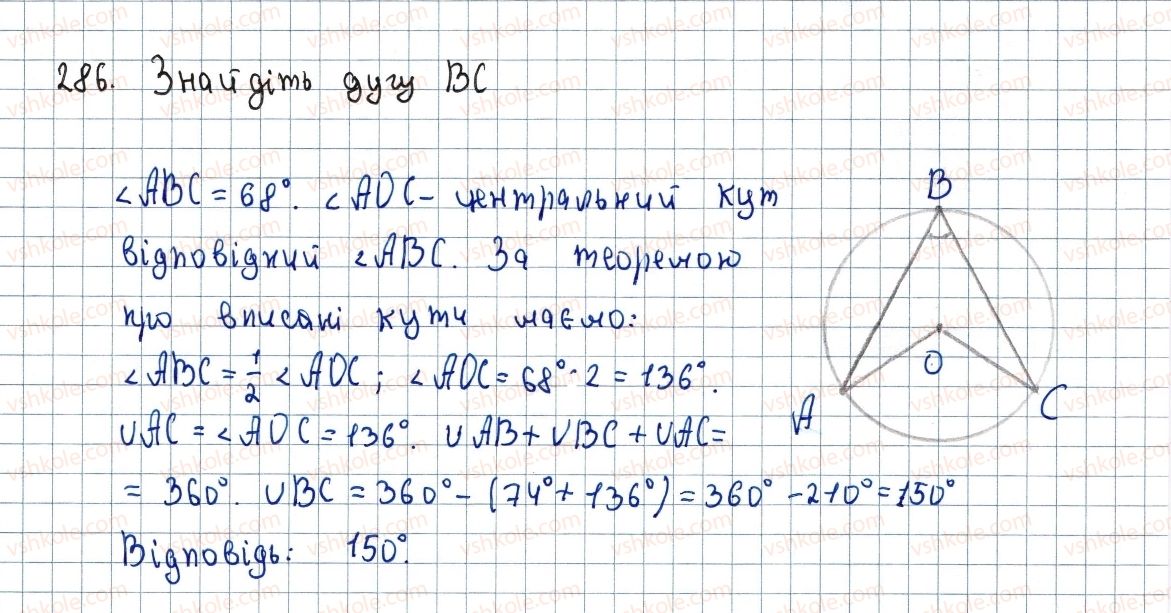 286. Знайдіть дугу BC
∠ABC = 68°. ∠AOC – центральний кут
B
відповідний ∠ABC. За теоремою
про вписані кути маємо:
∠ABC = 1/2 ∠AOC; ∠AOC = 68° · 2 = 136°.
O
A
C
∪AC = ∠AOC = 136°. ∪AB + ∪BC + ∪AC =
= 360°. ∪BC = 360° – (74° + 136°) = 360° – 210° = 150°
Відповідь: 150°.
vshkole.com